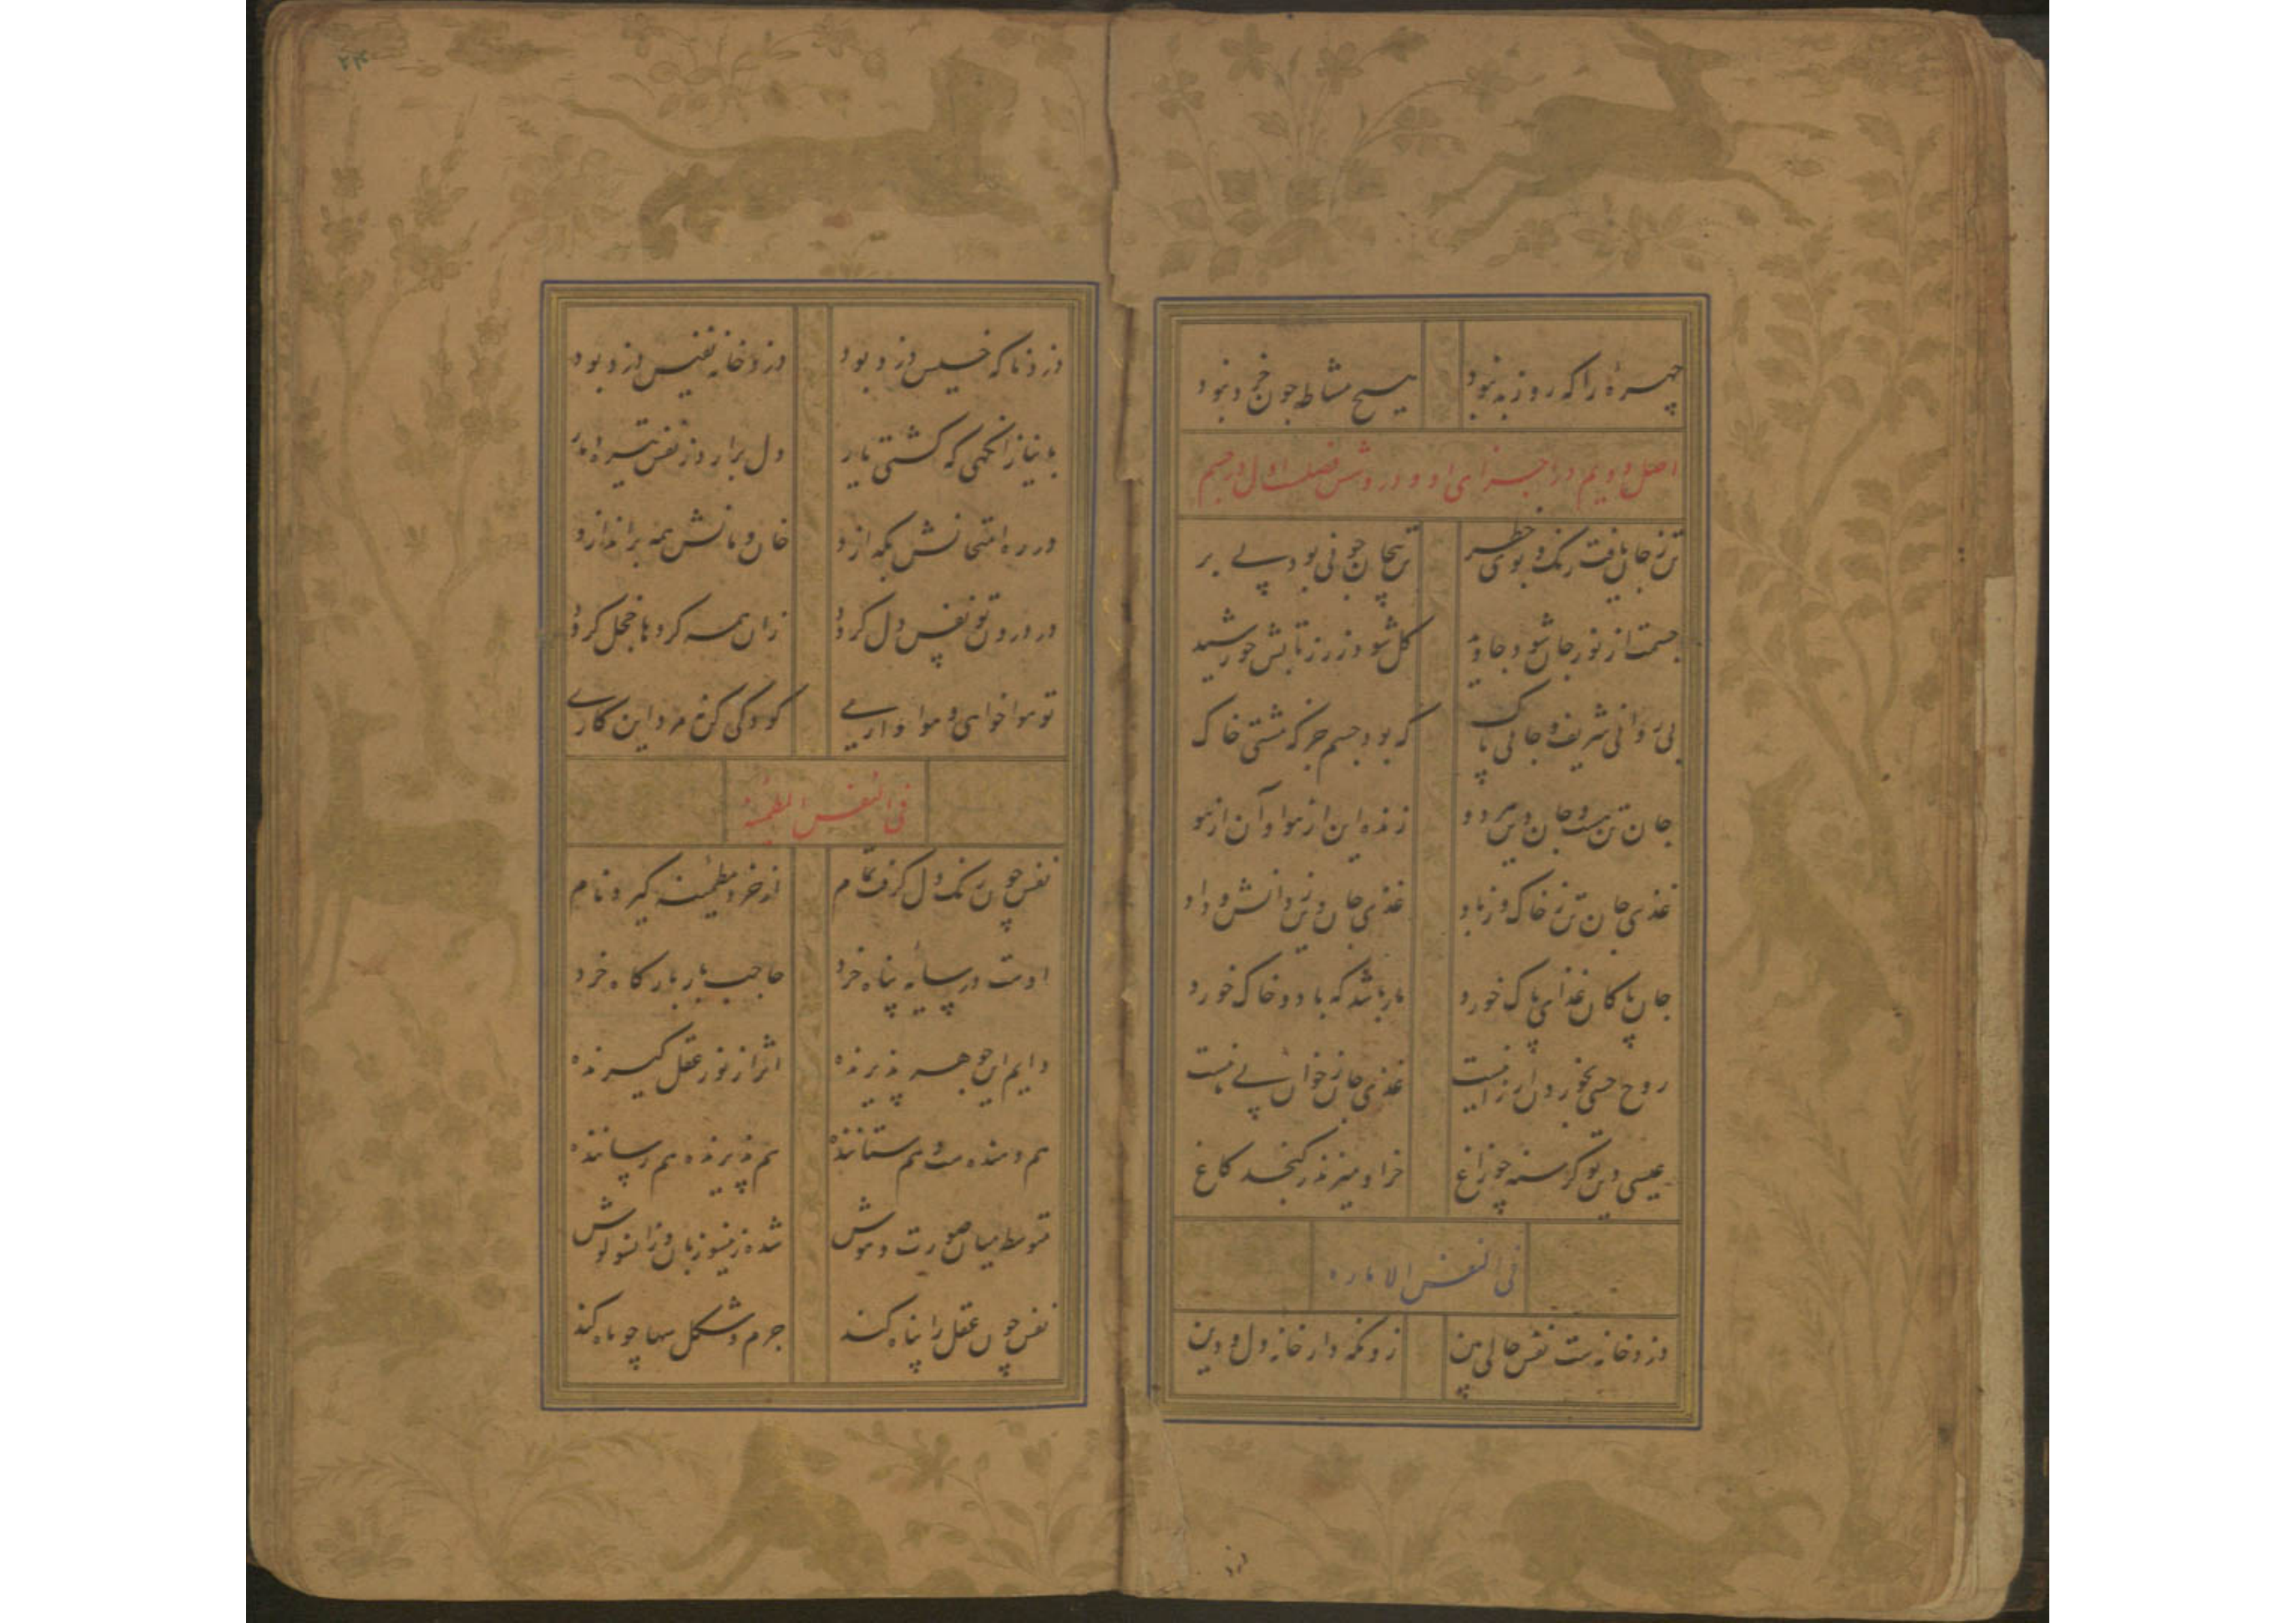 چهرهٔ را که روز به نبود
هیچ مشاطه جون خرد نبود
اصل دویم در اجزای او و در وشش فصلست اول در جسم
تن ز جان یافت رنک و بوی خطر
تن بیجان چو نی بود بے بر
جسمت از نور جان شود جاوید
کل شود زر ز تابش خورشید
بی روانی شریف و جانی پاک
که بود جسم جز که مشتی خاک
جان تن هست و جان دین هر دو
زنده این از هوا و آن از هو
غذی جان تن ز خاک و ز باد
غذی جان دین ز دانش و داد
جان پاکان غذای پاک خورد
مار باشد که باد و خاک خورد
روح حسی بخوردن ارزانیست
غذی جان ز خوان بے نانیست
عیسی دین تو کرسنه چو زاغ
خر او میزند ز کنجد کاغ
فی النفس الاماره
دزد خانه ست نفس حالی بین
زو نکه دار خانه دل و دین
۲۴
دزد ناکه خسیس دزد بود
دزد خانه نفیس دزد بود
با نیاز آنکهی که کشتی یار
دل برار د ز نفس تیره دمار
در ره امتحانش بکدازد
خان و مانش همه براندازد
در درون تو نفس دل کردد
زان همه کردها خجل کردد
تو هوا خواهی و هوا داریے
کودکی کن نه مرد این کاریے
فی النفس المطمئنه
نفس چون رنک دل کرفت تمام
از خرد مطمئنه کیرد نام
اوست در سایه پناه خرد
حاجب بار بارکاه خرد
دایم این جوهر پذیرنده
اثر از نور عقل کیرنده
هم دهنده ست و هم ستاننده
هم پذیرنده هم رساننده
متوسط میان صورت و هوش
شده زینسو زبان و زانسو کوش
نفس چون عقل را پناه کند
جرم و شکل سها چو ماه کند
دزد